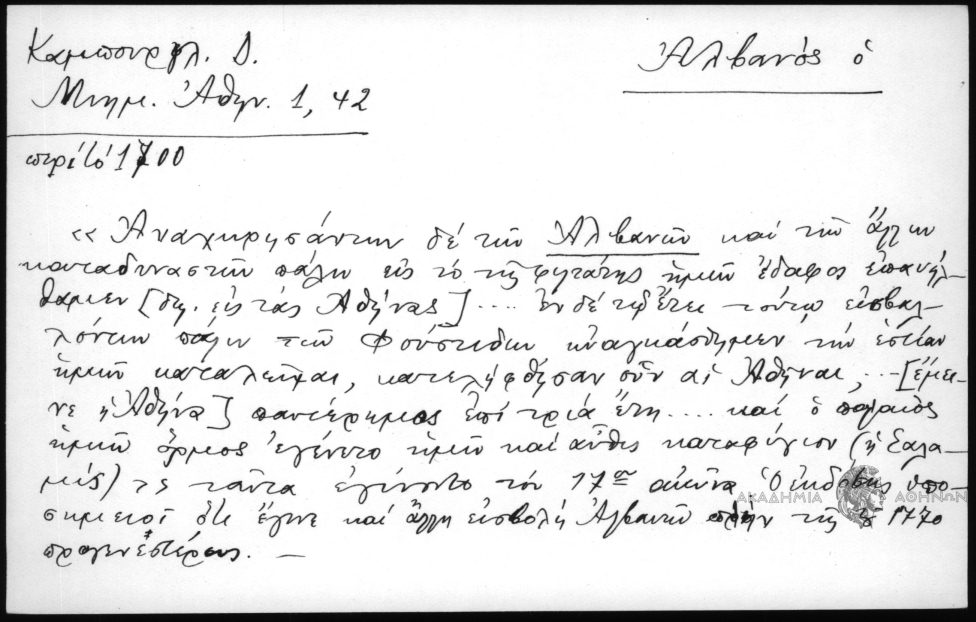 Καμπουρογλ. Δ.
Ἀλβανός ὁ
Μνημ. Ἀθην. 1, 42
περί τό 1700
«Ἀναχωρησάντων δέ τῶν Ἀλβανῶν καί τῶν ἄλλων
καταδυναστῶν πάλιν εἰς τό τῆς φιλτάτης ἡμῶν ἔδαφος ἐπανήλ-
θαμεν [δηλ. εἰς τάς Ἀθήνας] .... ἐν δέ τῷ ἔτει τούτῳ εἰσβαλ-
λόντων πάλιν τῶν Φούστιδων ἠναγκάσθημεν τήν ἑστίαν
ἡμῶν καταλεῖψαι, κατελήφθησαν οὖν αἱ Ἀθῆναι, ... [ἔμει-
νε ἡ Ἀθήνα] πανέρημος ἐπί τρία ἔτη .... καί ὁ παλαιός
ἡμῶν ὅρμος ἐγένετο ἡμῖν καί αὖθις καταφύγιον (ἡ Σαλα-
μίς) » ταῦτα ἐγίνοντο τόν 17ον αἰῶνα Ὁ ἐκδότης ὑπο-
σημειοῖ ὅτι ἔγινε καί ἄλλη εἰσβολή Ἀλβανῶν πλήν τῆς τῷ 1770
προγενεστέρως. —
ΑΚΑΔΗΜΙΑ ΑΘΗΝΩΝ